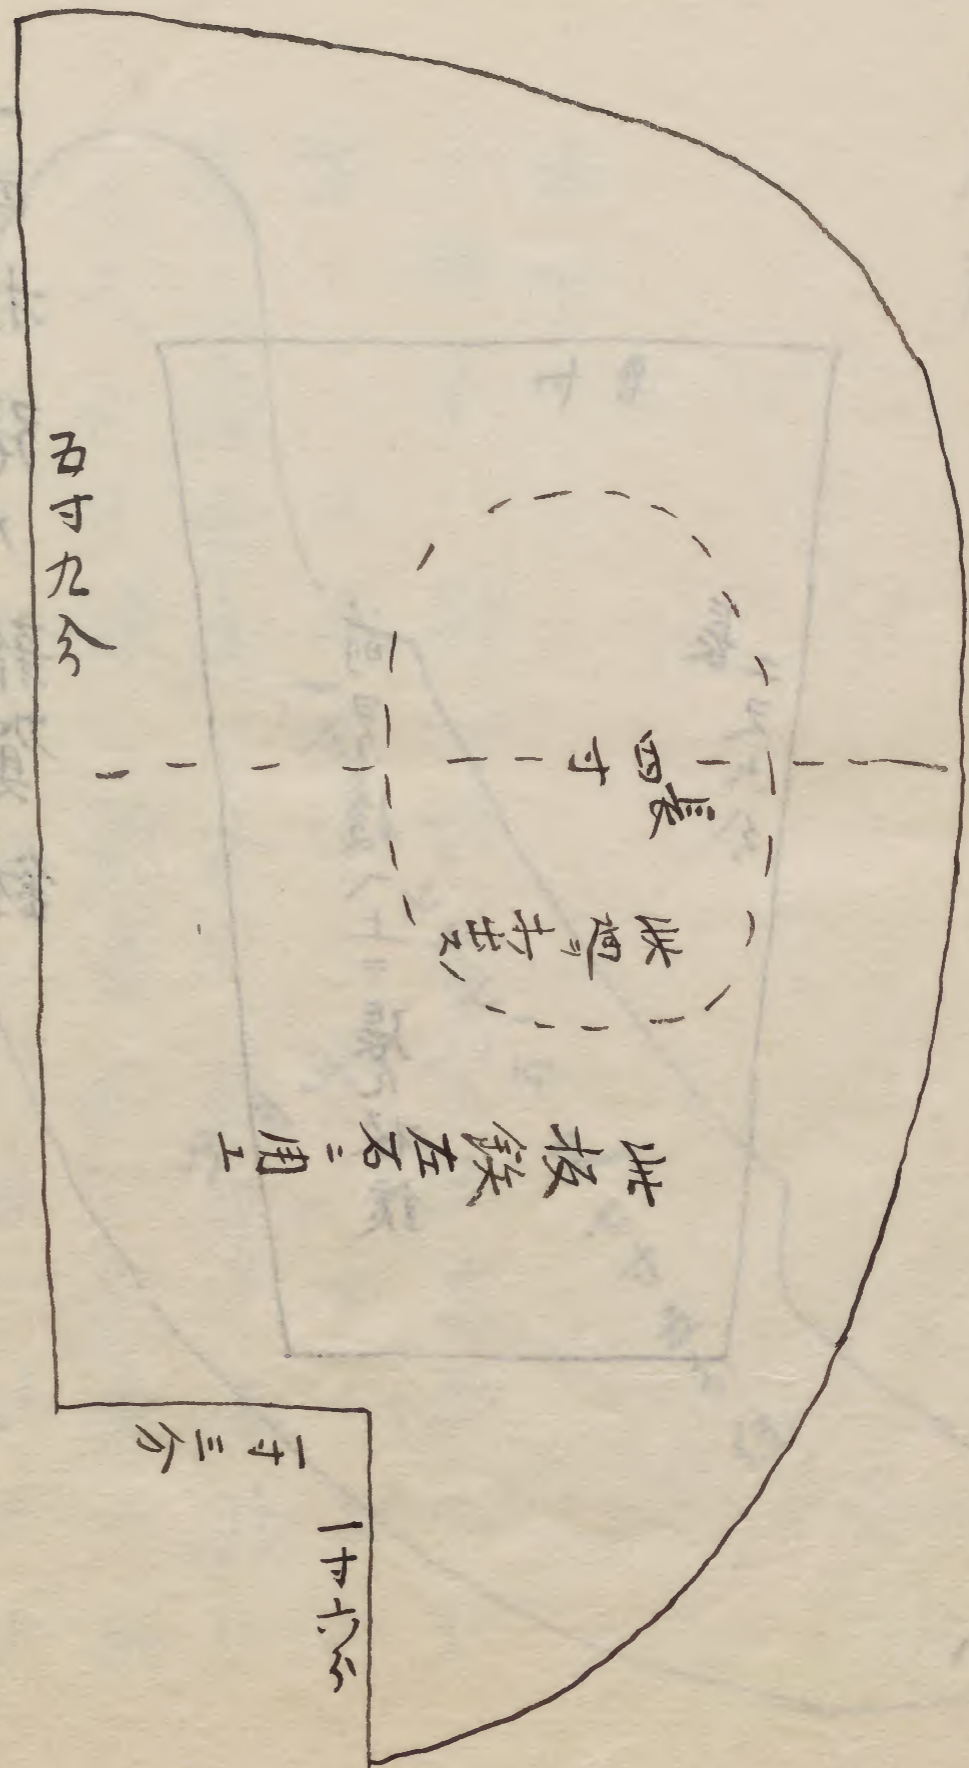 五寸九分
長四寸
此廻リ打出ス
此板鉄左右ニ用エ
一寸三分
一寸六分